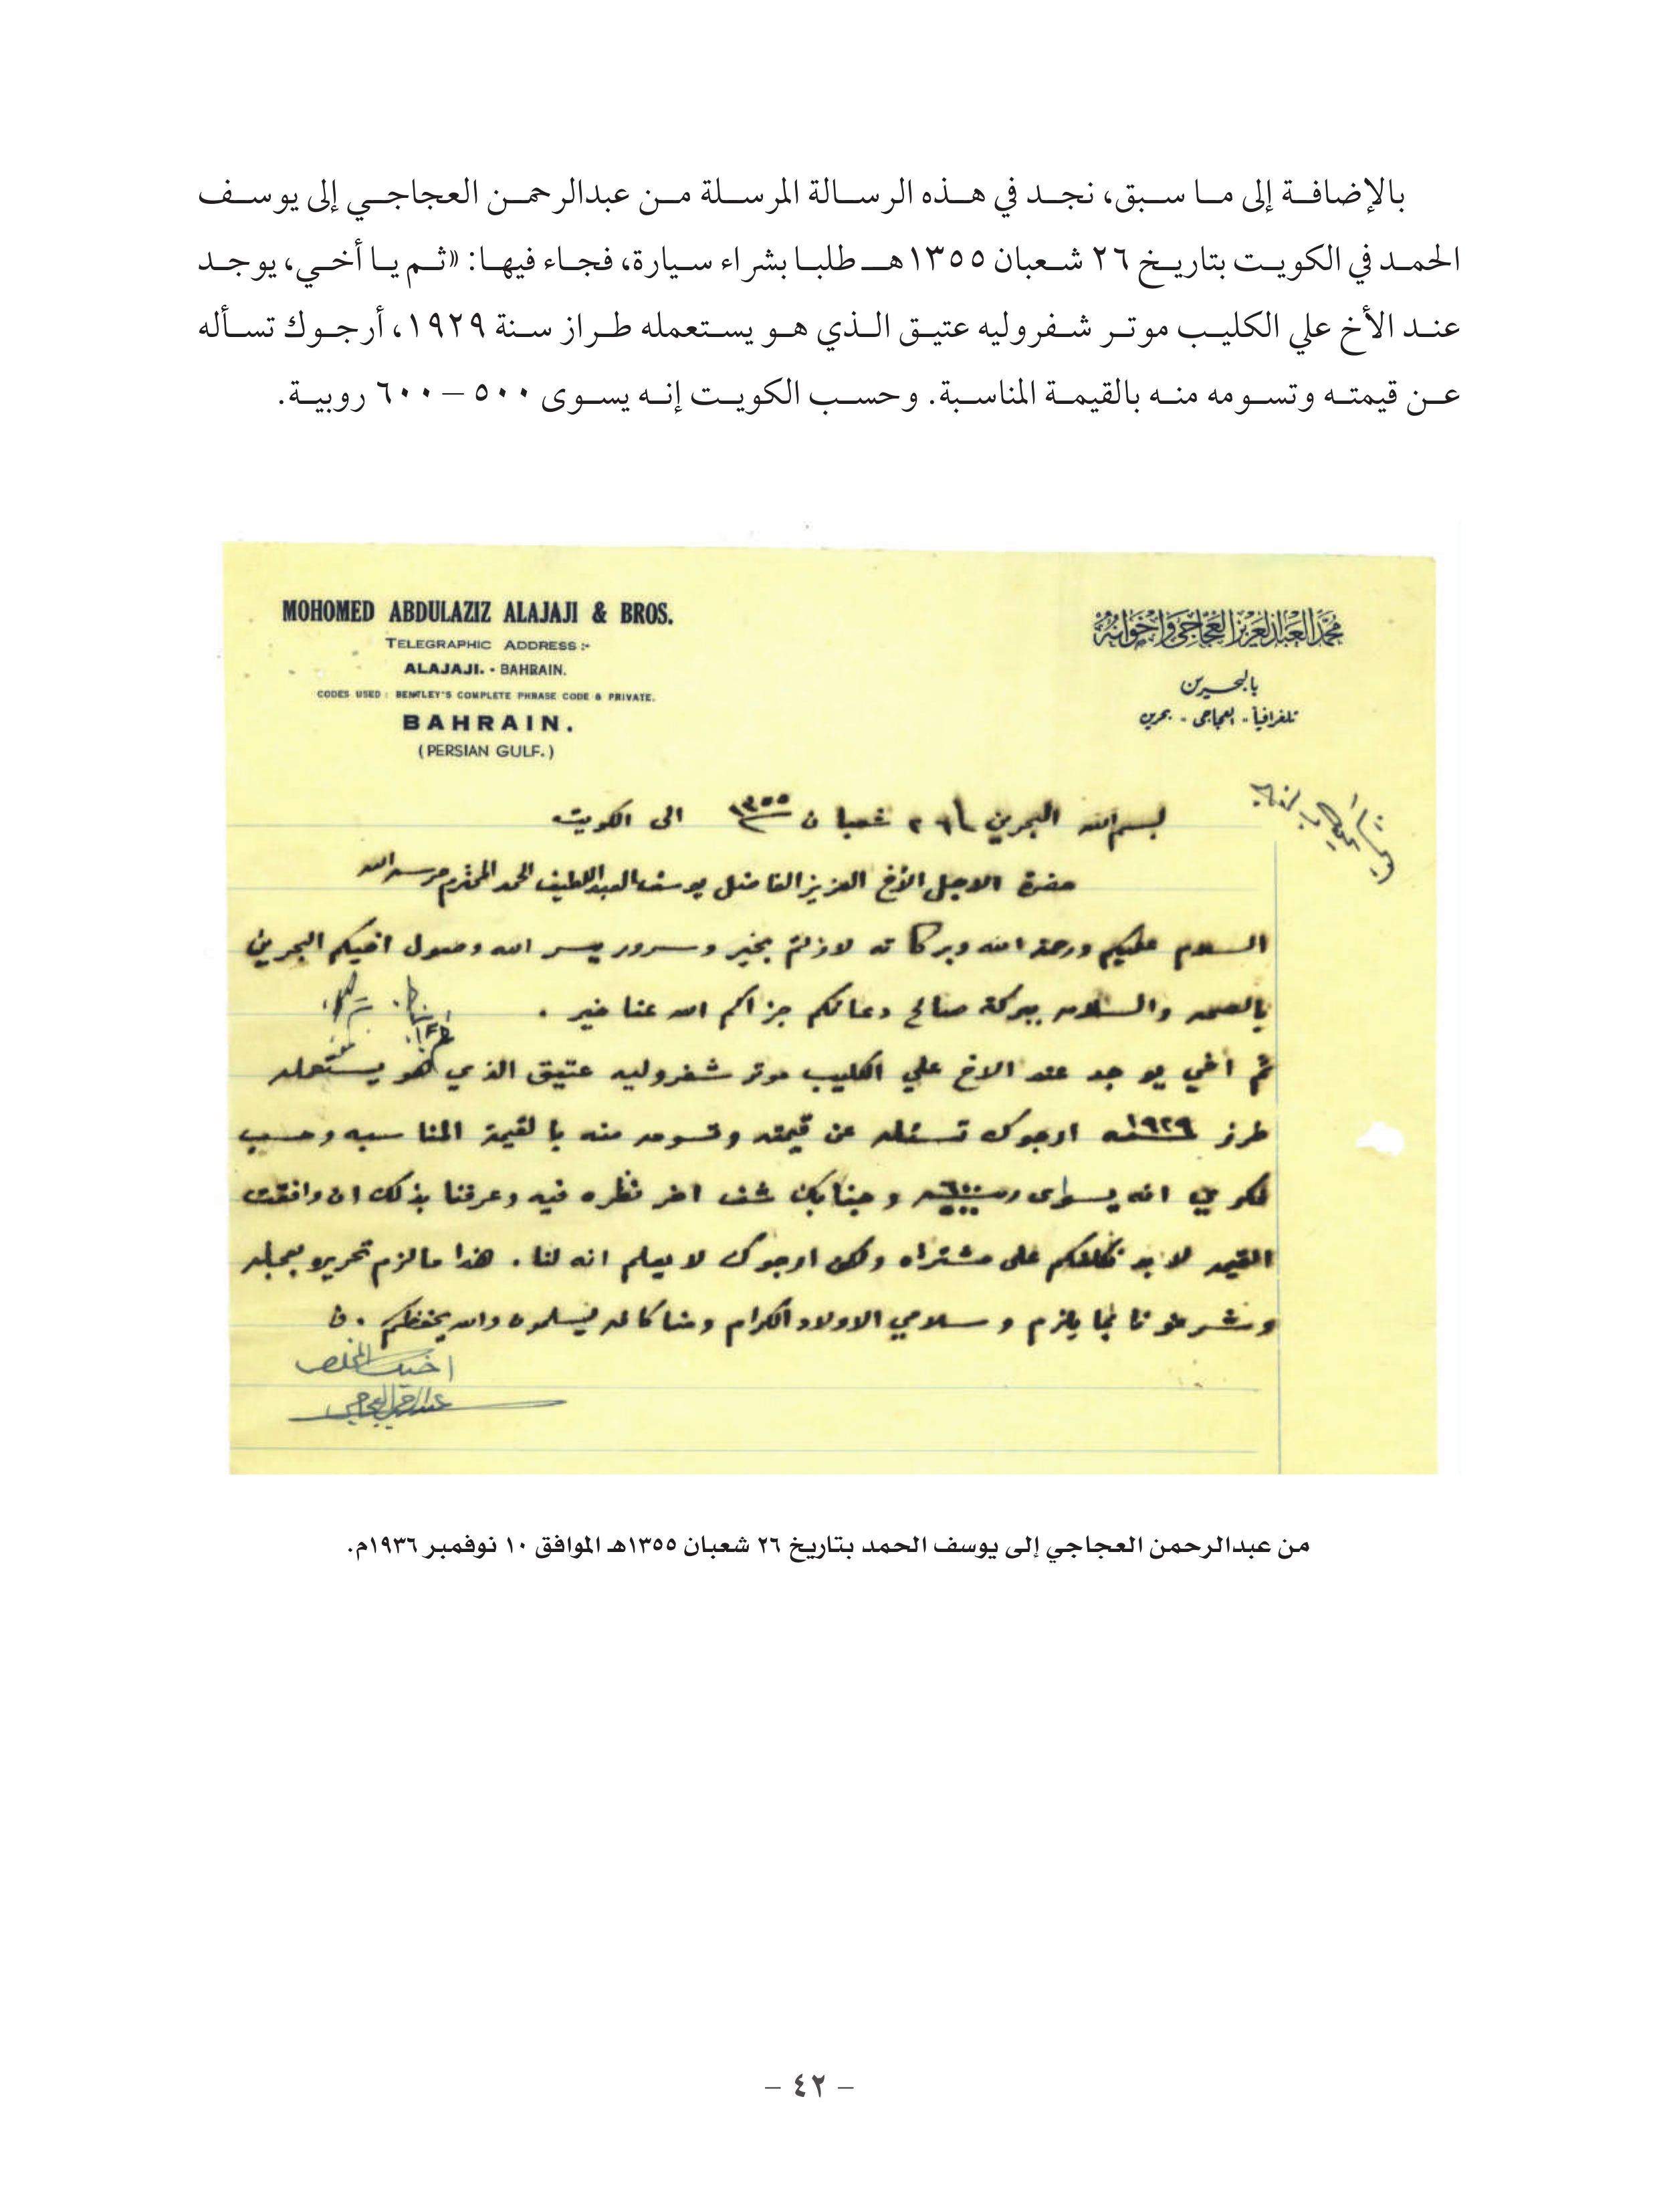 بالإضافة إلى ما سبق، نجد في هذه الرسالة المرسلة من عبدالرحمن العجاجي إلى يوسف
الحمد في الكويت بتاريخ ٢٦ شعبان ١٣٥٥هـ طلبا بشراء سيارة، فجاء فيها: «ثم يا أخي، يوجد
عند الأخ علي الكليب موتر شفروليه عتيق الذي هو يستعمله طراز سنة ١٩٢٩، أرجوك تسأله
عن قيمته وتسومه منه بالقيمة المناسبة. وحسب الكويت إنه يسوى ٥٠٠ – ٦٠٠ روبية.
MOHOMED ABDULAZIZ ALAJAJI & BROS.
TELEGRAPHIC ADDRESS:-
ALAJAJI. - BAHRAIN.
CODES USED: BENTLEY'S COMPLETE PHRASE CODE & PRIVATE.
BAHRAIN.
(PERSIAN GULF.)
محمد العبد العزيز العجاجي واخوانه
بالبحرين
تلغرافياً - العجاجي - بحرين
بسم الله البحرين ٢٦ شعبان ١٣٥٥ الى الكويت
حضرة الاجل الأخ العزيز الفاضل يوسف العبداللطيف الحمد المحترم حرسه الله
السلام عليكم ورحمة الله وبركاته لازلتم بخير وسرور يسر الله وصول اخيكم البحرين
بالصحه والسلامه ببركة صالح دعائكم جزاكم الله عنا خير .
ثم اخي يوجد عند الاخ علي الكليب موتر شفروليه عتيق الذي هو يستعمله
طرز سنه ١٩٢٩ ارجوك تسئله عن قيمته وتسومه منه بالقيمة المناسبه وحسب
انه يسوى وجنابك شف اخر نظره فيه وعرفنا بذلك ان وافقت
القيمه لابد نكلفكم على مشتراه ولكن ارجوك لا يعلم انه لنا . هذا مالزم تحريره بعجله
وشرفونا بما يلزم وسلامي الاولاد الكرام ومنا كافه يسلمون والله يحفظكم .
اخيك المخلص
عبدالرحمن العجاجي
من عبدالرحمن العجاجي إلى يوسف الحمد بتاريخ ٢٦ شعبان ١٣٥٥هـ الموافق ١٠ نوفمبر ١٩٣٦م.
– ٤٢ –